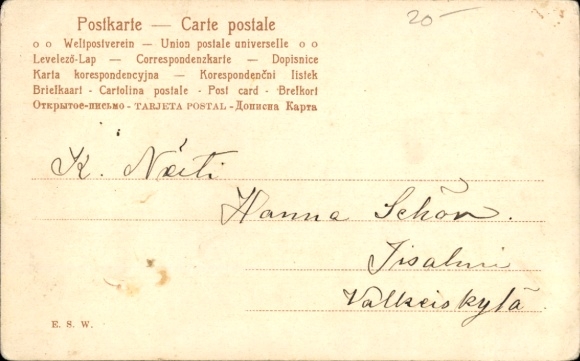 20-
Postkarte — Carte postale
o o Weltpostverein — Union postale universelle o o
Levelező-Lap — Correspondenzkarte — Dopisnice
Karta korespondencyjna — Korespondenčni listek
Briefkaart - Cartolina postale - Post card - Brefkort
Открытое-письмо - TARJETA POSTAL - Дописна Карта
K. Neiti
Hanna Schön.
Iisalmi
Valkeiskylä
E. S. W.